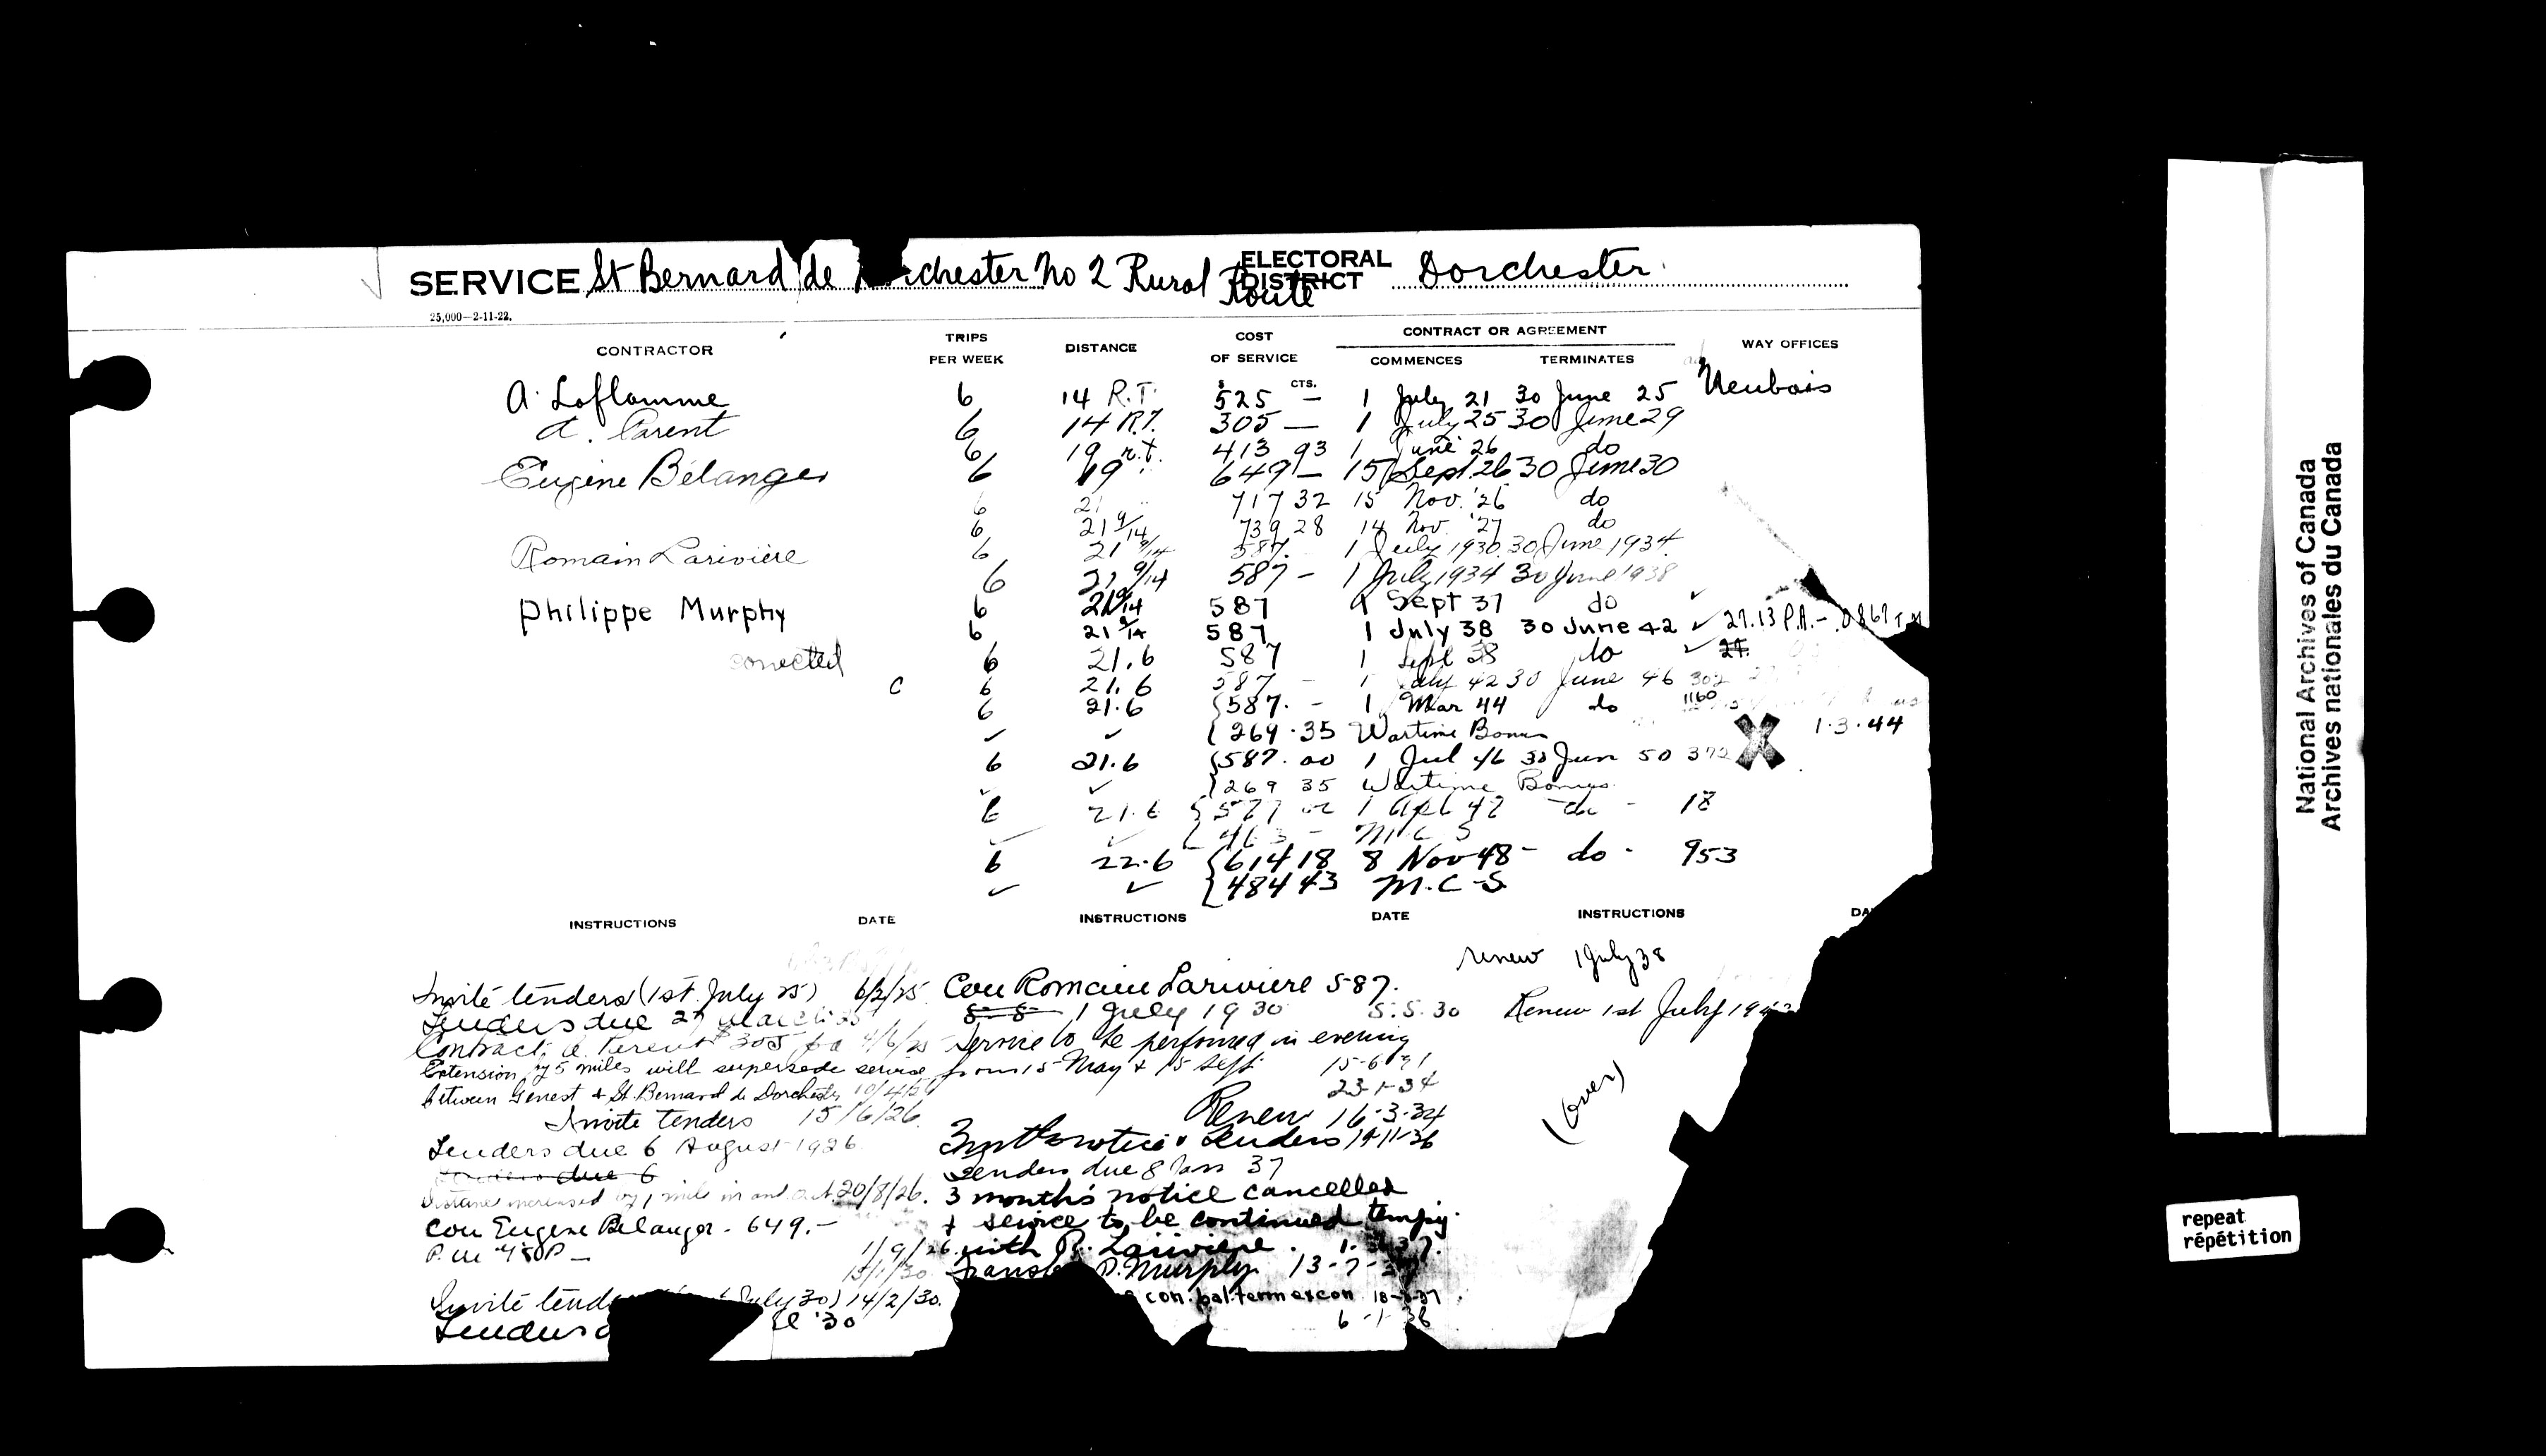 SERVICE St Bernard de chester No 2 Rural Route ELECTORAL DISTRICT Dorchester
25,000—2-11-22.
CONTRACTOR TRIPS PER WEEK DISTANCE COST OF SERVICE CONTRACT OR AGREEMENT COMMENCES TERMINATES WAY OFFICES
$ CTS.
A. Laflamme 6 14 R.T. 525 — 1 July 21 30 June 25 Neubois
A. Parent 6 14 R.T. 305 — 1 July 25 30 June 29
6 19 r.t. 413 93 1 June 26 do
Eugène Bélanger 6 19 " 649 — 15 Sept 26 30 June 30
6 21 " 717 32 15 Nov. '26 do
6 21 9/14 739 28 14 Nov '27 do
Romain Larivière 6 21 9/14 587. 1 July 1930 30 June 1934
6 21 9/14 587 — 1 July 1934 30 June 1938
Philippe Murphy 6 21 9/14 587 1 Sept 37 do
6 21 9/14 587 1 July 38 30 June 42 ✓ 27.13 P.A. – .0867
corrected 6 21.6 587 1 Sept 38 do ✓ 27.
C 6 21.6 587 – 1 July 42 30 June 46 302
6 21.6 {587. – 1 Mar 44 do 1160
✓ ✓ {269.35 Wartime Bonus 1.3.44
6 21.6 {587.00 1 Jul 46 30 Jun 50 372 X
✓ ✓ {269 35 Wartime Bonus
6 21.6 1 Apl 47 do - 18
✓ ✓ {463 – M C S
6 22.6 {614 18 8 Nov 48 – do - 953
✓ ✓ {484 43 M.C.S.
INSTRUCTIONS DATE INSTRUCTIONS DATE INSTRUCTIONS DA
Invite tenders (1st July 25) 6/2/25
Tenders due 27 March 25
Contract, A. Parent $305 4/6/25
Extension of 5 miles will supersede service
between Genest & St. Bernard de Dorchester
Invite tenders 15/6/26.
Tenders due 6 August 1926
due 6
Distance increased by 1 mile in and out 20/8/26.
Con Eugene Belanger - 649.—
1/9/26
15/1/30
Invite tend July 30) 14/2/30.
Tenders '30
Con Romain Lariviere 587.
1 July 1930 5.5.30
Service to be performed in evening
from 15 May & 15 Sept
23-1-34
Renew 16-3-34
3 mths notice & Tenders 14-11-36
Tenders due 8 Jan 37
3 months notice cancelled
& service to be continued tempy.
with R. Lariviere.
P. Murphy 13-7-
con. bal. term ex con
6-1-38
renew 1 July 38
Renew 1st July 194
(over)
National Archives of Canada
Archives nationales du Canada
repeat
répétition